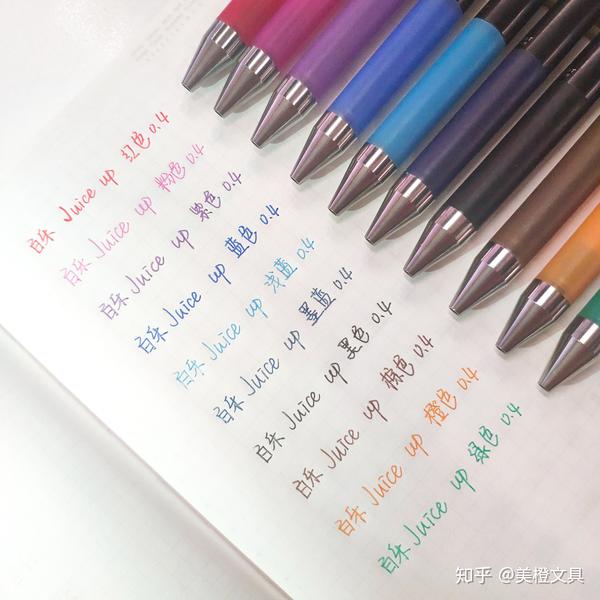 百乐 Juice up 红色 0.4
百乐 Juice up 粉色 0.4
百乐 Juice up 紫色 0.4
百乐 Juice up 蓝色 0.4
百乐 Juice up 浅蓝 0.4
百乐 Juice up 墨蓝 0.4
百乐 Juice up 黑色 0.4
百乐 Juice up 棕色 0.4
百乐 Juice up 橙色 0.4
百乐 Juice up 绿色 0.4
知乎 @美橙文具